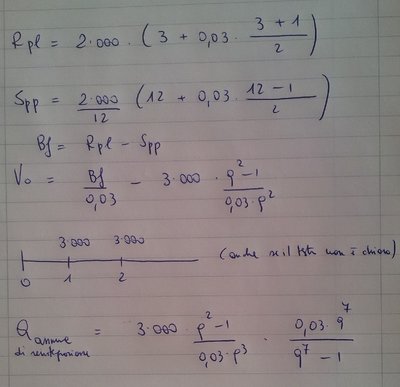 Rpl = 2.000 · (3 + 0,03 · (3 + 1)/2)
Spp = 2.000/12 (12 + 0,03 · (12 - 1)/2)
Bf = Rpl - Spp
V₀ = Bf/0,03 - 3.000 · (q² - 1)/(0,03 · q²)
3.000 3.000
0 1 2 (anche se il testo non è chiaro)
Q annue = 3.000 · (q² - 1)/(0,03 · q³) · (0,03 · q⁷)/(q⁷ - 1)
di